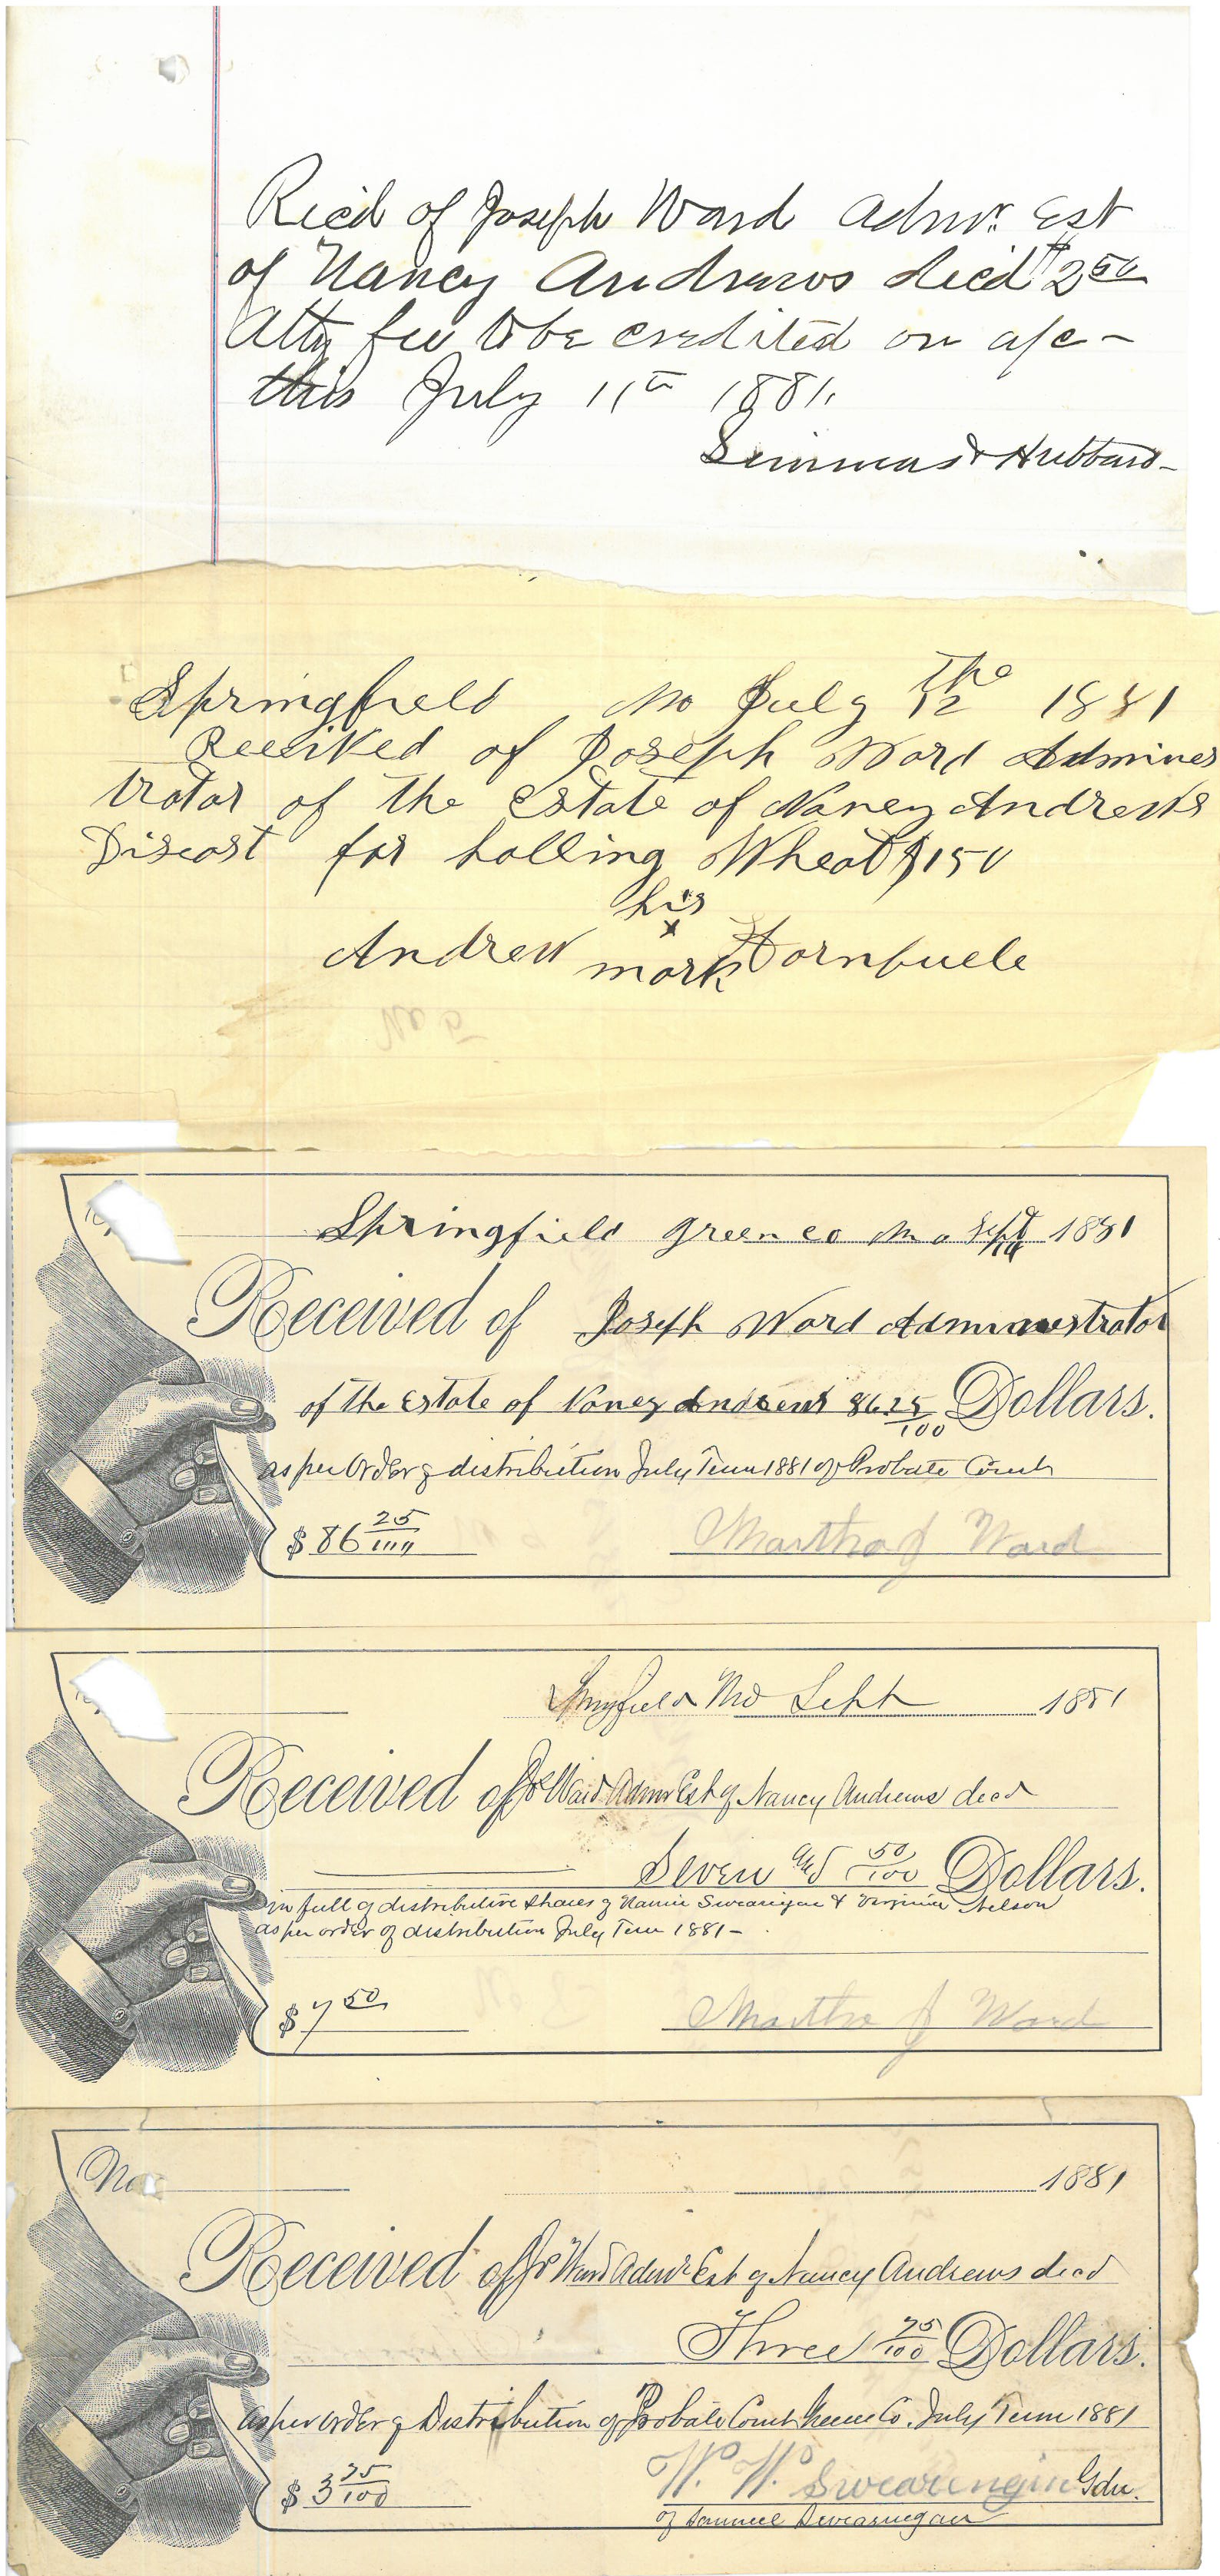 Rec'd of Joseph Ward Admr. Est
of Nancy Andrews dec'd $2 50
Atty fee to be credited on a/c -
this July 11th 1881.
Simmons & Hubbard -
Springfield Mo July 12 the 1881
Received of Joseph Ward Adminis
trator of the Estate of Nancy Andrews
Diseast for holling Wheat $ 150
his
Andrew x
mark
Springfield Green co Mo Sept 1881
Received of Joseph Ward Administrator
of the Estate of Nancy Andrews 86 25/100 Dollars.
as per Order of distribution July Term 1881 of Probate Court
$ 86 25/100 Martha J Ward
Springfield Mo Sept 1881
Received of Jos Ward Admr Est of Nancy Andrews decd
Seven and 50/100 Dollars.
in full of distributive shares of Nannie Swearingen & Virginia Nelson
as per order of distribution July Term 1881 -
$ 7 50 Martha J Ward
No. 1881
Received of Jos Ward Admr Est of Nancy Andrews decd
Three 75/100 Dollars.
as per order of Distribution of Probate Court Greene Co. July Term 1881
$ 3 75/100 W. W. Swearingin Gdn.
of Samuel Swearingan